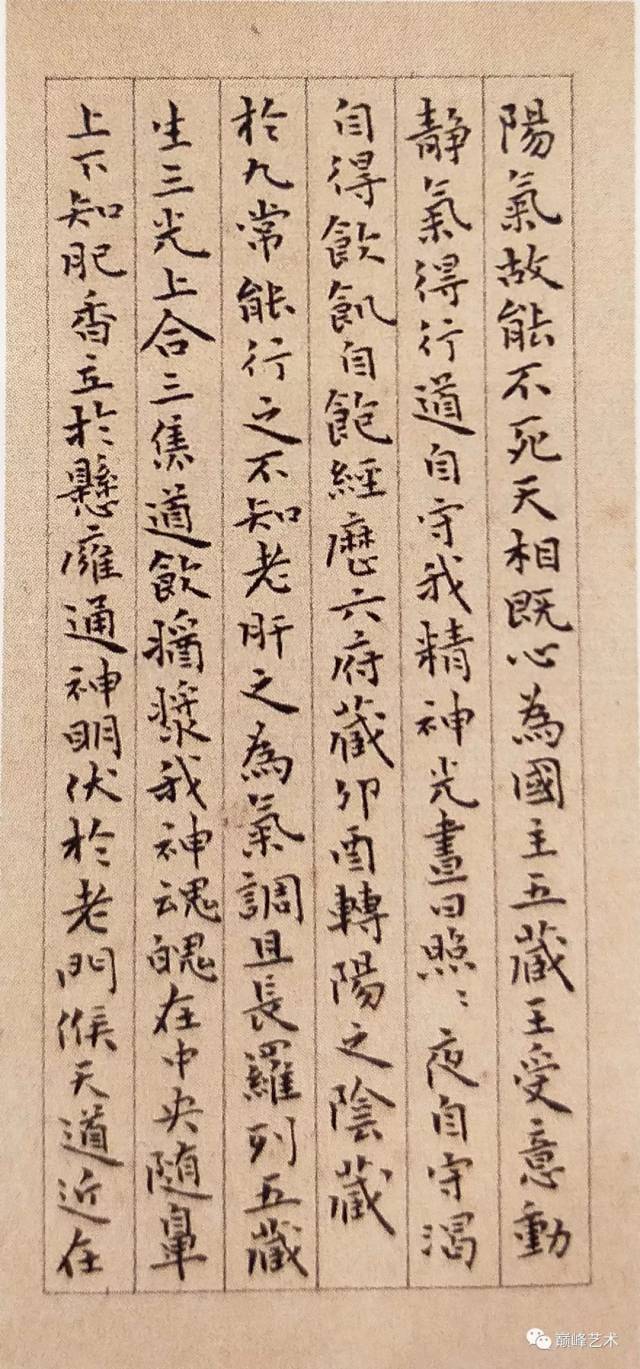 陽氣故能不死天相既心為國主五藏王受意動
静氣得行道自守我精神光晝日照〻夜自守渴
自得飲飢自飽經歷六府藏卯酉轉陽之陰藏
於九常能行之不知老肝之為氣調且長羅列五藏
生三光上合三焦道飲漿我神魂魄在中央随鼻
上下知肥香立於懸廱通神明伏於老門候天道近在
巅峰艺术